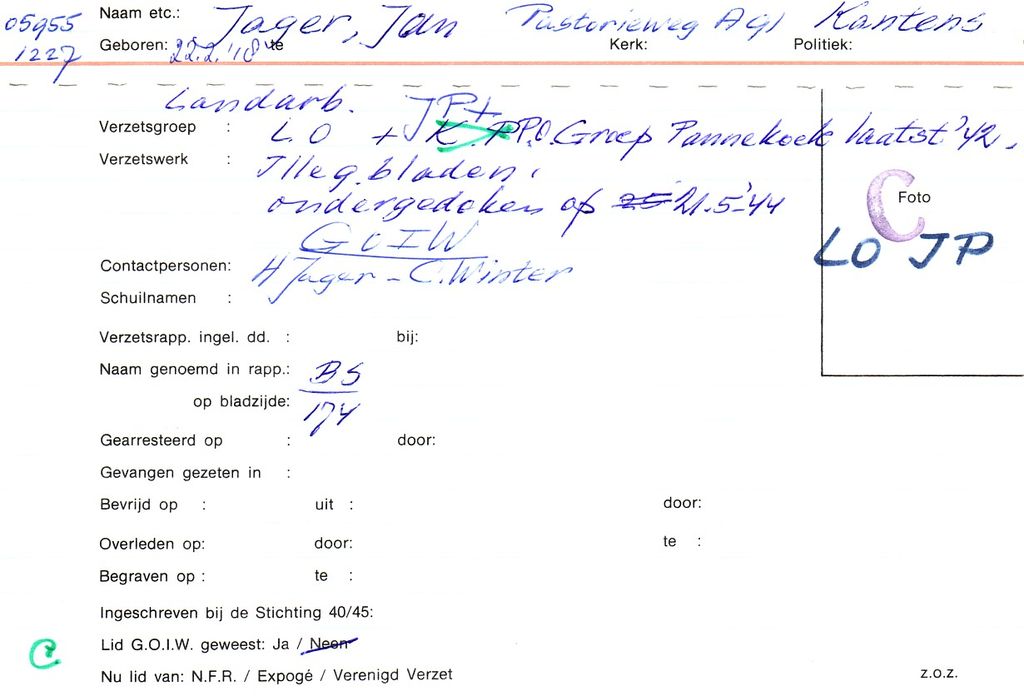 05955 Naam etc.: Jager, Jan Pastorieweg A91 Kantens
1227 Geboren: 22.2.'18 te Kerk: Politiek:
Landarb. JP+
Verzetsgroep : L.O + K.P P.O. Groep Pannekoek laatst '42.
Verzetswerk : Illeg. bladen.
ondergedoken op 25 21.5.'44
C Foto
GOIW
LO JP
Contactpersonen: H Jager - C. Winter
Schuilnamen :
Verzetsrapp. ingel. dd. : bij:
Naam genoemd in rapp.: BS
op bladzijde: 174
Gearresteerd op : door:
Gevangen gezeten in :
Bevrijd op : uit : door:
Overleden op: door: te :
Begraven op : te :
Ingeschreven bij de Stichting 40/45:
C Lid G.O.I.W. geweest: Ja / Neen
Nu lid van: N.F.R. / Expogé / Verenigd Verzet z.o.z.